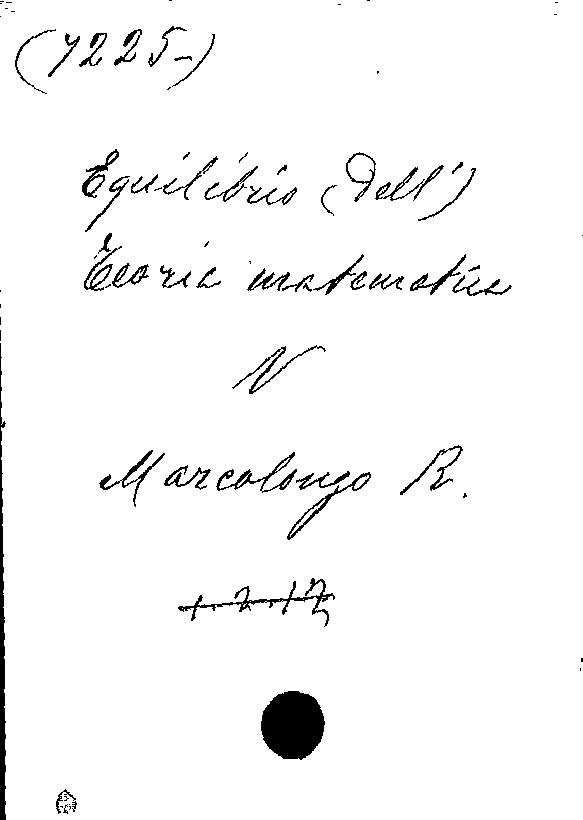 (7225-)
Equilibrio (Dell')
Teoria matematica
V
Marcolongo R.
1.2.12